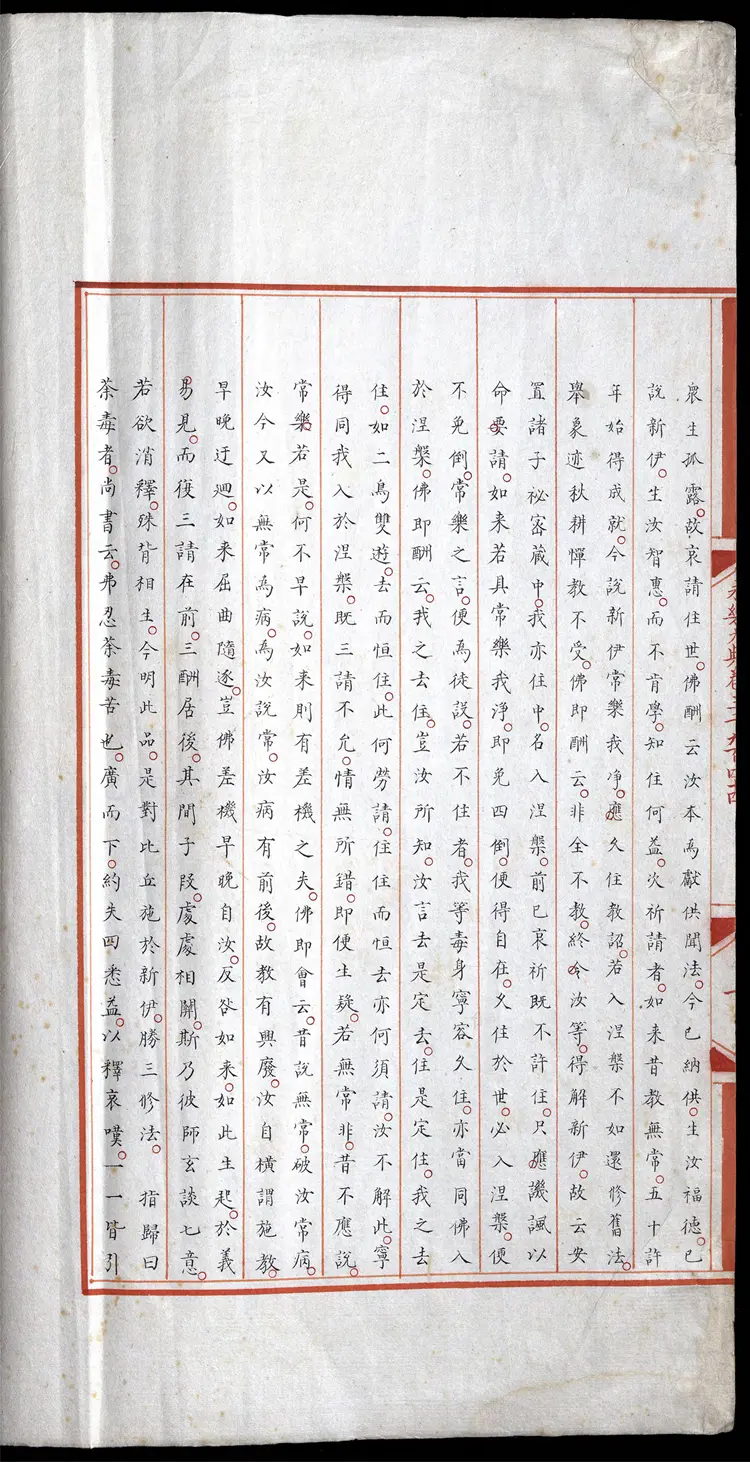 衆生孤露。故哀請住世。佛酬云汝本為獻供聞法。今已納供。生汝福德。已
說新伊。生汝智惠。而不肯學。知住何益。次祈請者。如来昔教無常。五十許
年始得成就。今說新伊常樂我净。應久住教詔。若入涅槃不如還修舊法。
舉象迹秋耕憚教不受。佛即酬云。非全不教。終令汝等。得解新伊。故云安
置諸子祕密藏中。我亦住中。名入涅槃。前已哀祈既不許住。只應譏諷以
命要請。如来若具常樂我淨。即免四倒。便得自在。久住於世。必入涅槃。便
不免倒。常樂之言。便為徒設。若不住者。我等毒身寧容久住。亦當同佛入
於涅槃。佛即酬云。我之去住。豈汝所知。汝言去是定去。住是定住。我之去
住。如二鳥雙遊。去而恒住。此何勞請。住住而恒去亦何須請。汝不解此。寧
得同我入於涅槃。既三請不允。情無所錯。即便生疑。若無常非。昔不應說。
常樂若是。何不早說。如来則有差機之失。佛即會云。昔說無常。破汝常病。
汝今又以無常為病。為汝說常。汝病有前後。故教有興廢。汝自橫謂施教。
早晚迂迴。如来屈曲隨逐。豈佛差機早晚自汝。反咎如来。如此生起。於義
易見。而後三請在前。三酬居後。其間子段。處處相關。斯乃彼師玄談七意。
若欲消釋。殊背相生。今明此品。是對比丘施於新伊。勝三修法。 指歸曰
荼毒者。尚書云。弗忍荼毒苦也。廣而下。約失四悉益。以釋哀嘆。一一皆引